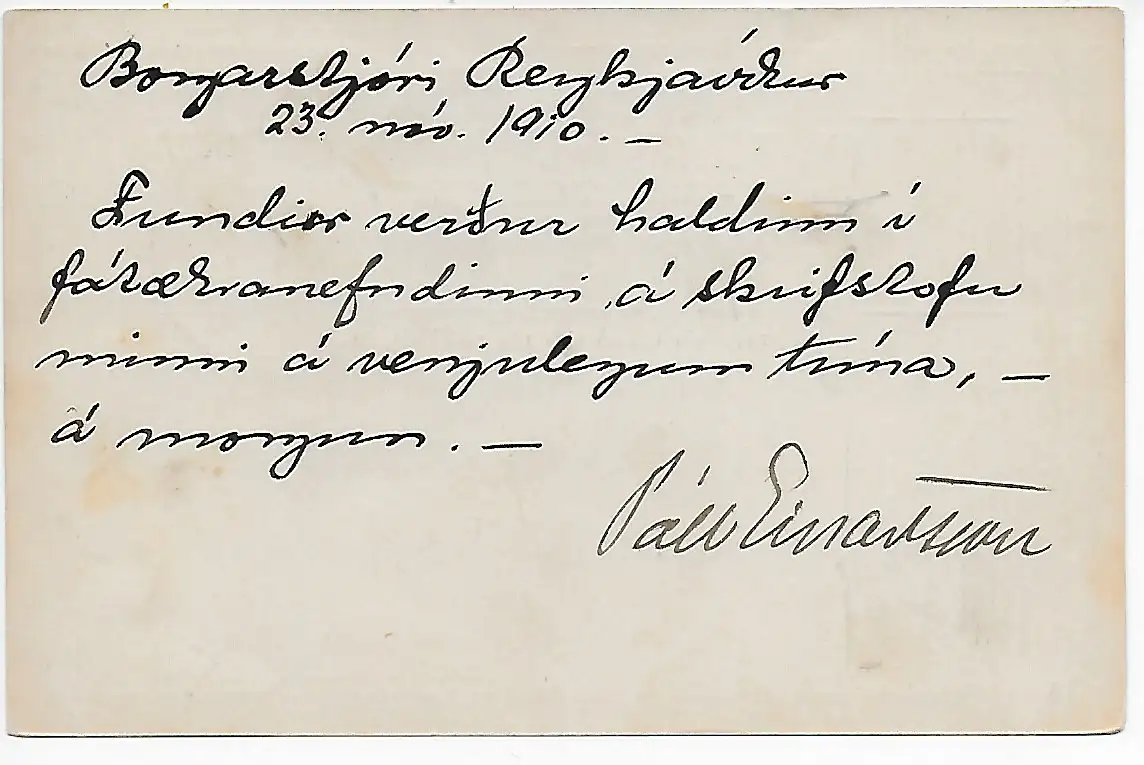 Borgarstjóri Reykjavíkur
23. nóv. 1910. —
Fundur verður haldinn í
fátækranefndinni á skrifstofu
minni á venjulegum tíma, —
á morgun. —
Páll Einarsson